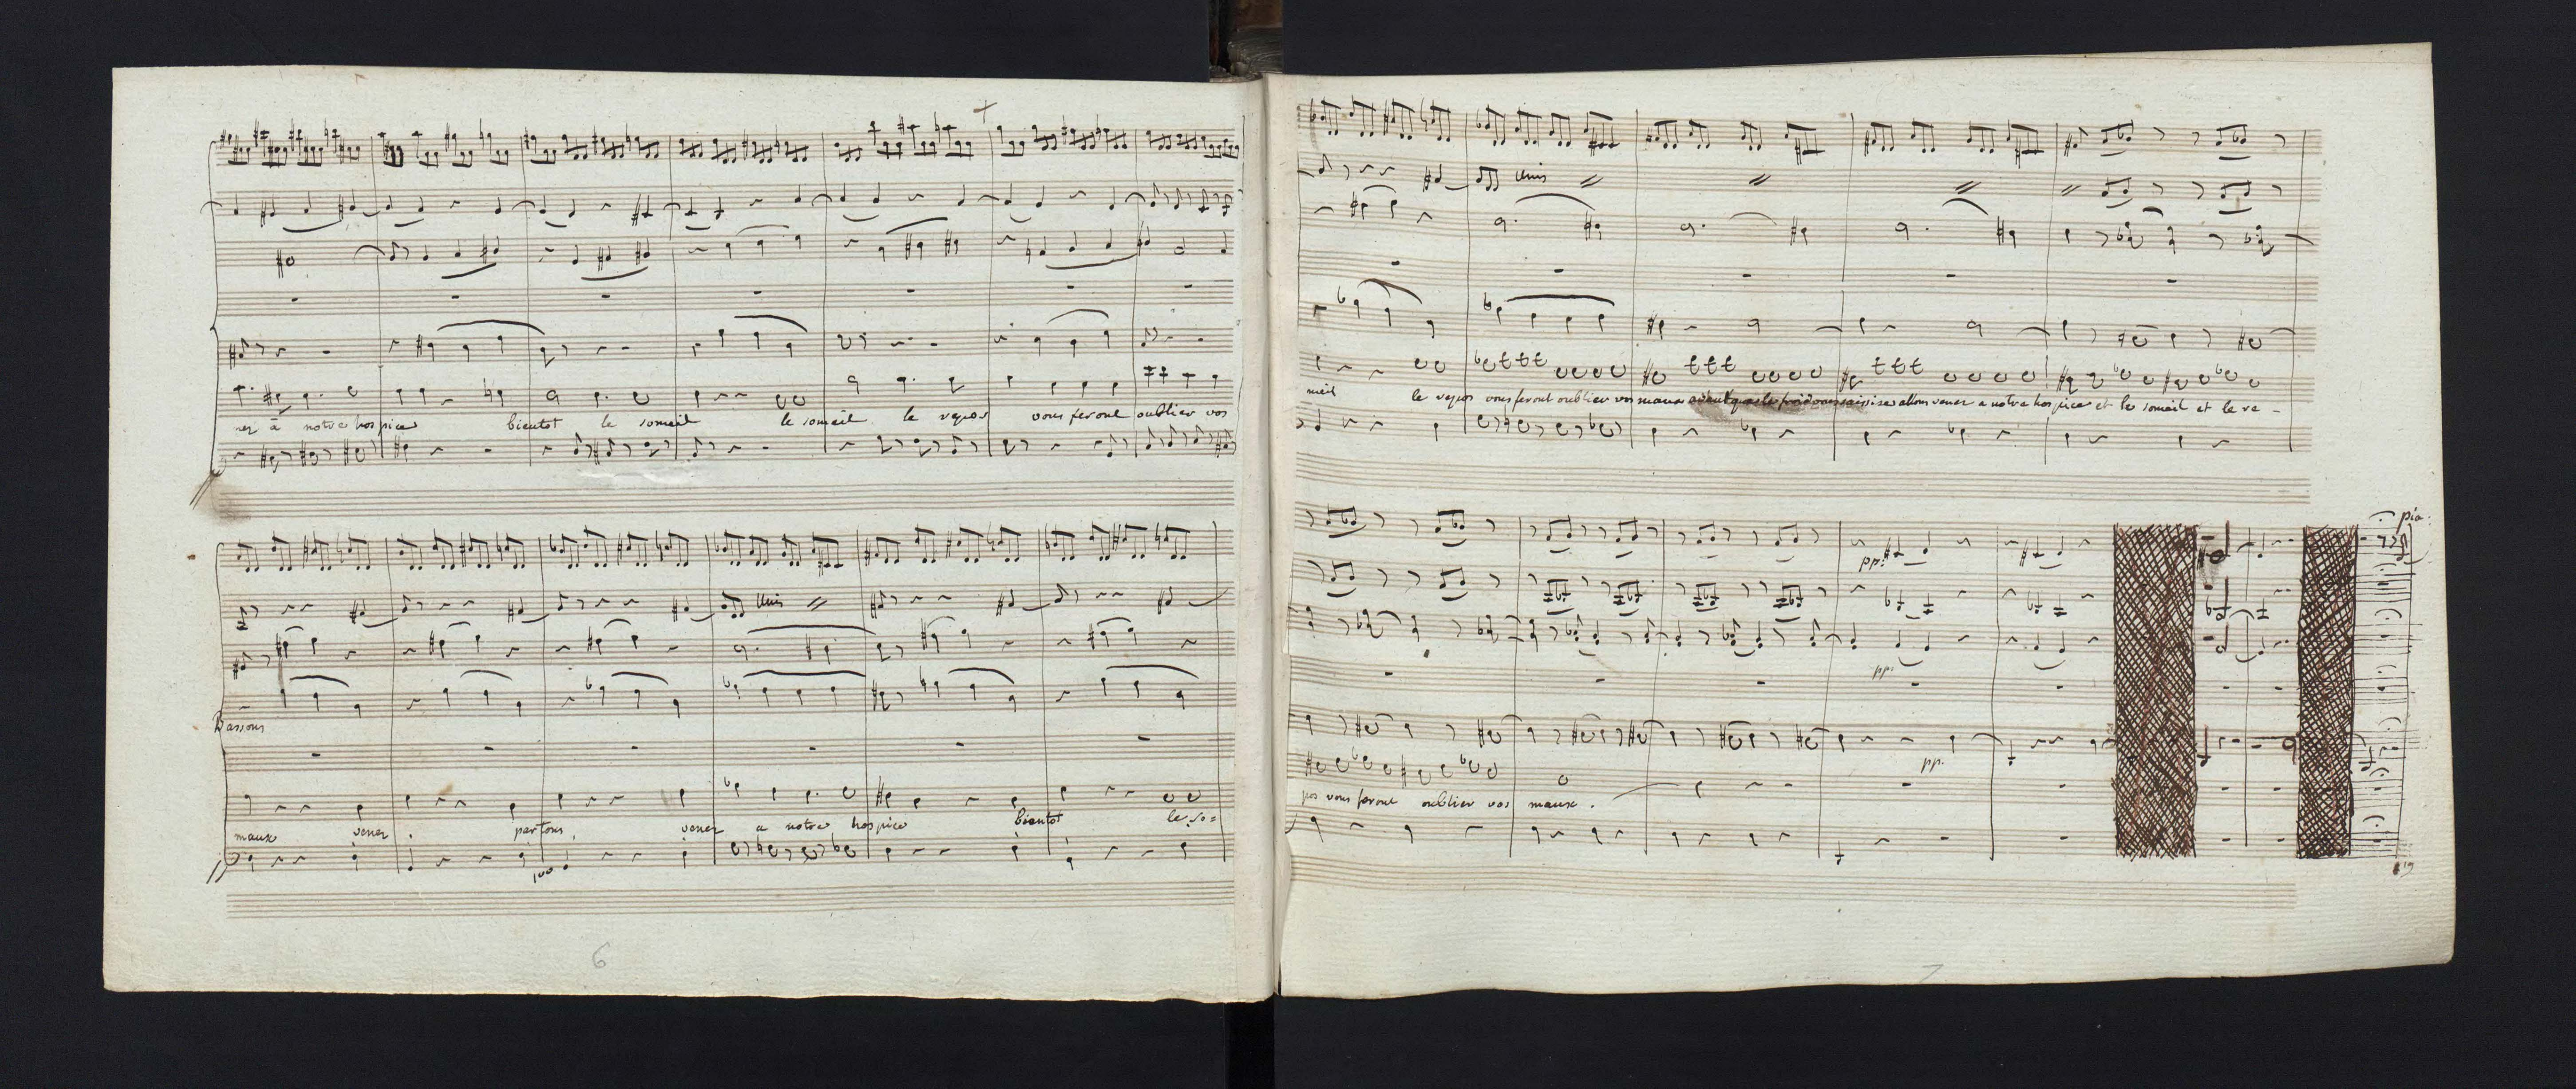 ner à notre hospice bientot le someil le someil le repos vous feront oublier vos
Unis
Bassons
maux venez partons, venez a notre hospice bientot le so=
100
6
Unis
meil le repos vous feront oublier vos maux avant que le froid vous saisisse allons venez a notre hospice et le someil et le re-
pio:
pp:
pp:
pp.
pos vous feront oublier vos maux.
7